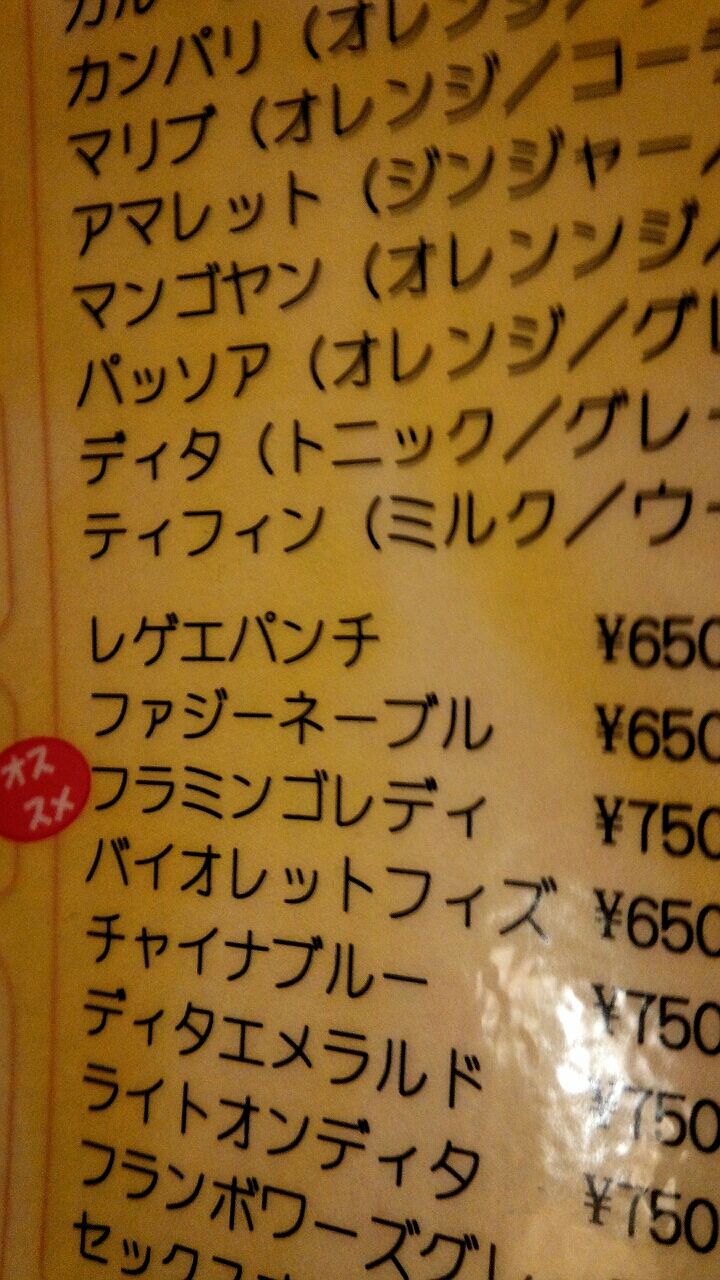 カンパリ（オレンジ／
マリブ（オレンジ／コー
アマレット（ジンジャー／
マンゴヤン（オレンンジ／
パッソア（オレンジ／グレ
ディタ（トニック／グレー
ティフィン（ミルク／ウー
レゲエパンチ ¥650
ファジーネーブル ¥650
オス
スメ
フラミンゴレディ ¥750
バイオレットフィズ ¥650
チャイナブルー ¥750
ディタエメラルド ¥750
ライトオンディタ ¥750
フランボワーズグレ
セックス